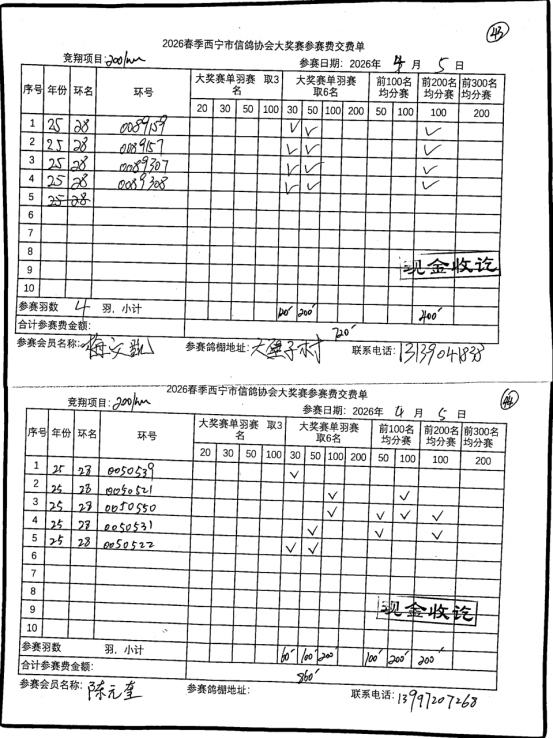 43
2026春季西宁市信鸽协会大奖赛参赛费交费单
竞翔项目:200km 参赛日期: 2026年 4 月 5 日
序号 年份 环名 环号 大奖赛单羽赛 取3名 大奖赛单羽赛 取6名 前100名均分赛 前200名均分赛 前300名均分赛
20 30 50 100 30 50 100 200 50 100 100 200
1 25 28 0089159 ✓ ✓ ✓
2 25 28 0089157 ✓ ✓ ✓
3 25 28 0089307 ✓ ✓ ✓
4 25 28 0089308 ✓ ✓ ✓
5 25 28
6
7
8
9
10
现金收讫
参赛羽数 4 羽, 小计 120 200 400
合计参赛费金额: 720
参赛会员名称: 参赛鸽棚地址: 联系电话: 13139041838
44
2026春季西宁市信鸽协会大奖赛参赛费交费单
竞翔项目:200km 参赛日期: 2026年 4 月 5 日
序号 年份 环名 环号 大奖赛单羽赛 取3名 大奖赛单羽赛 取6名 前100名均分赛 前200名均分赛 前300名均分赛
20 30 50 100 30 50 100 200 50 100 100 200
1 25 28 0050539 ✓
2 25 28 0050521 ✓ ✓
3 25 28 0050550 ✓ ✓ ✓ ✓
4 25 28 0050531 ✓ ✓ ✓
5 25 28 0050522 ✓ ✓
6
7
8
9
10
现金收讫
参赛羽数 羽, 小计 60 100 200 100 200 200
合计参赛费金额: 860
参赛会员名称: 陈元奎 参赛鸽棚地址: 联系电话: 13997207268